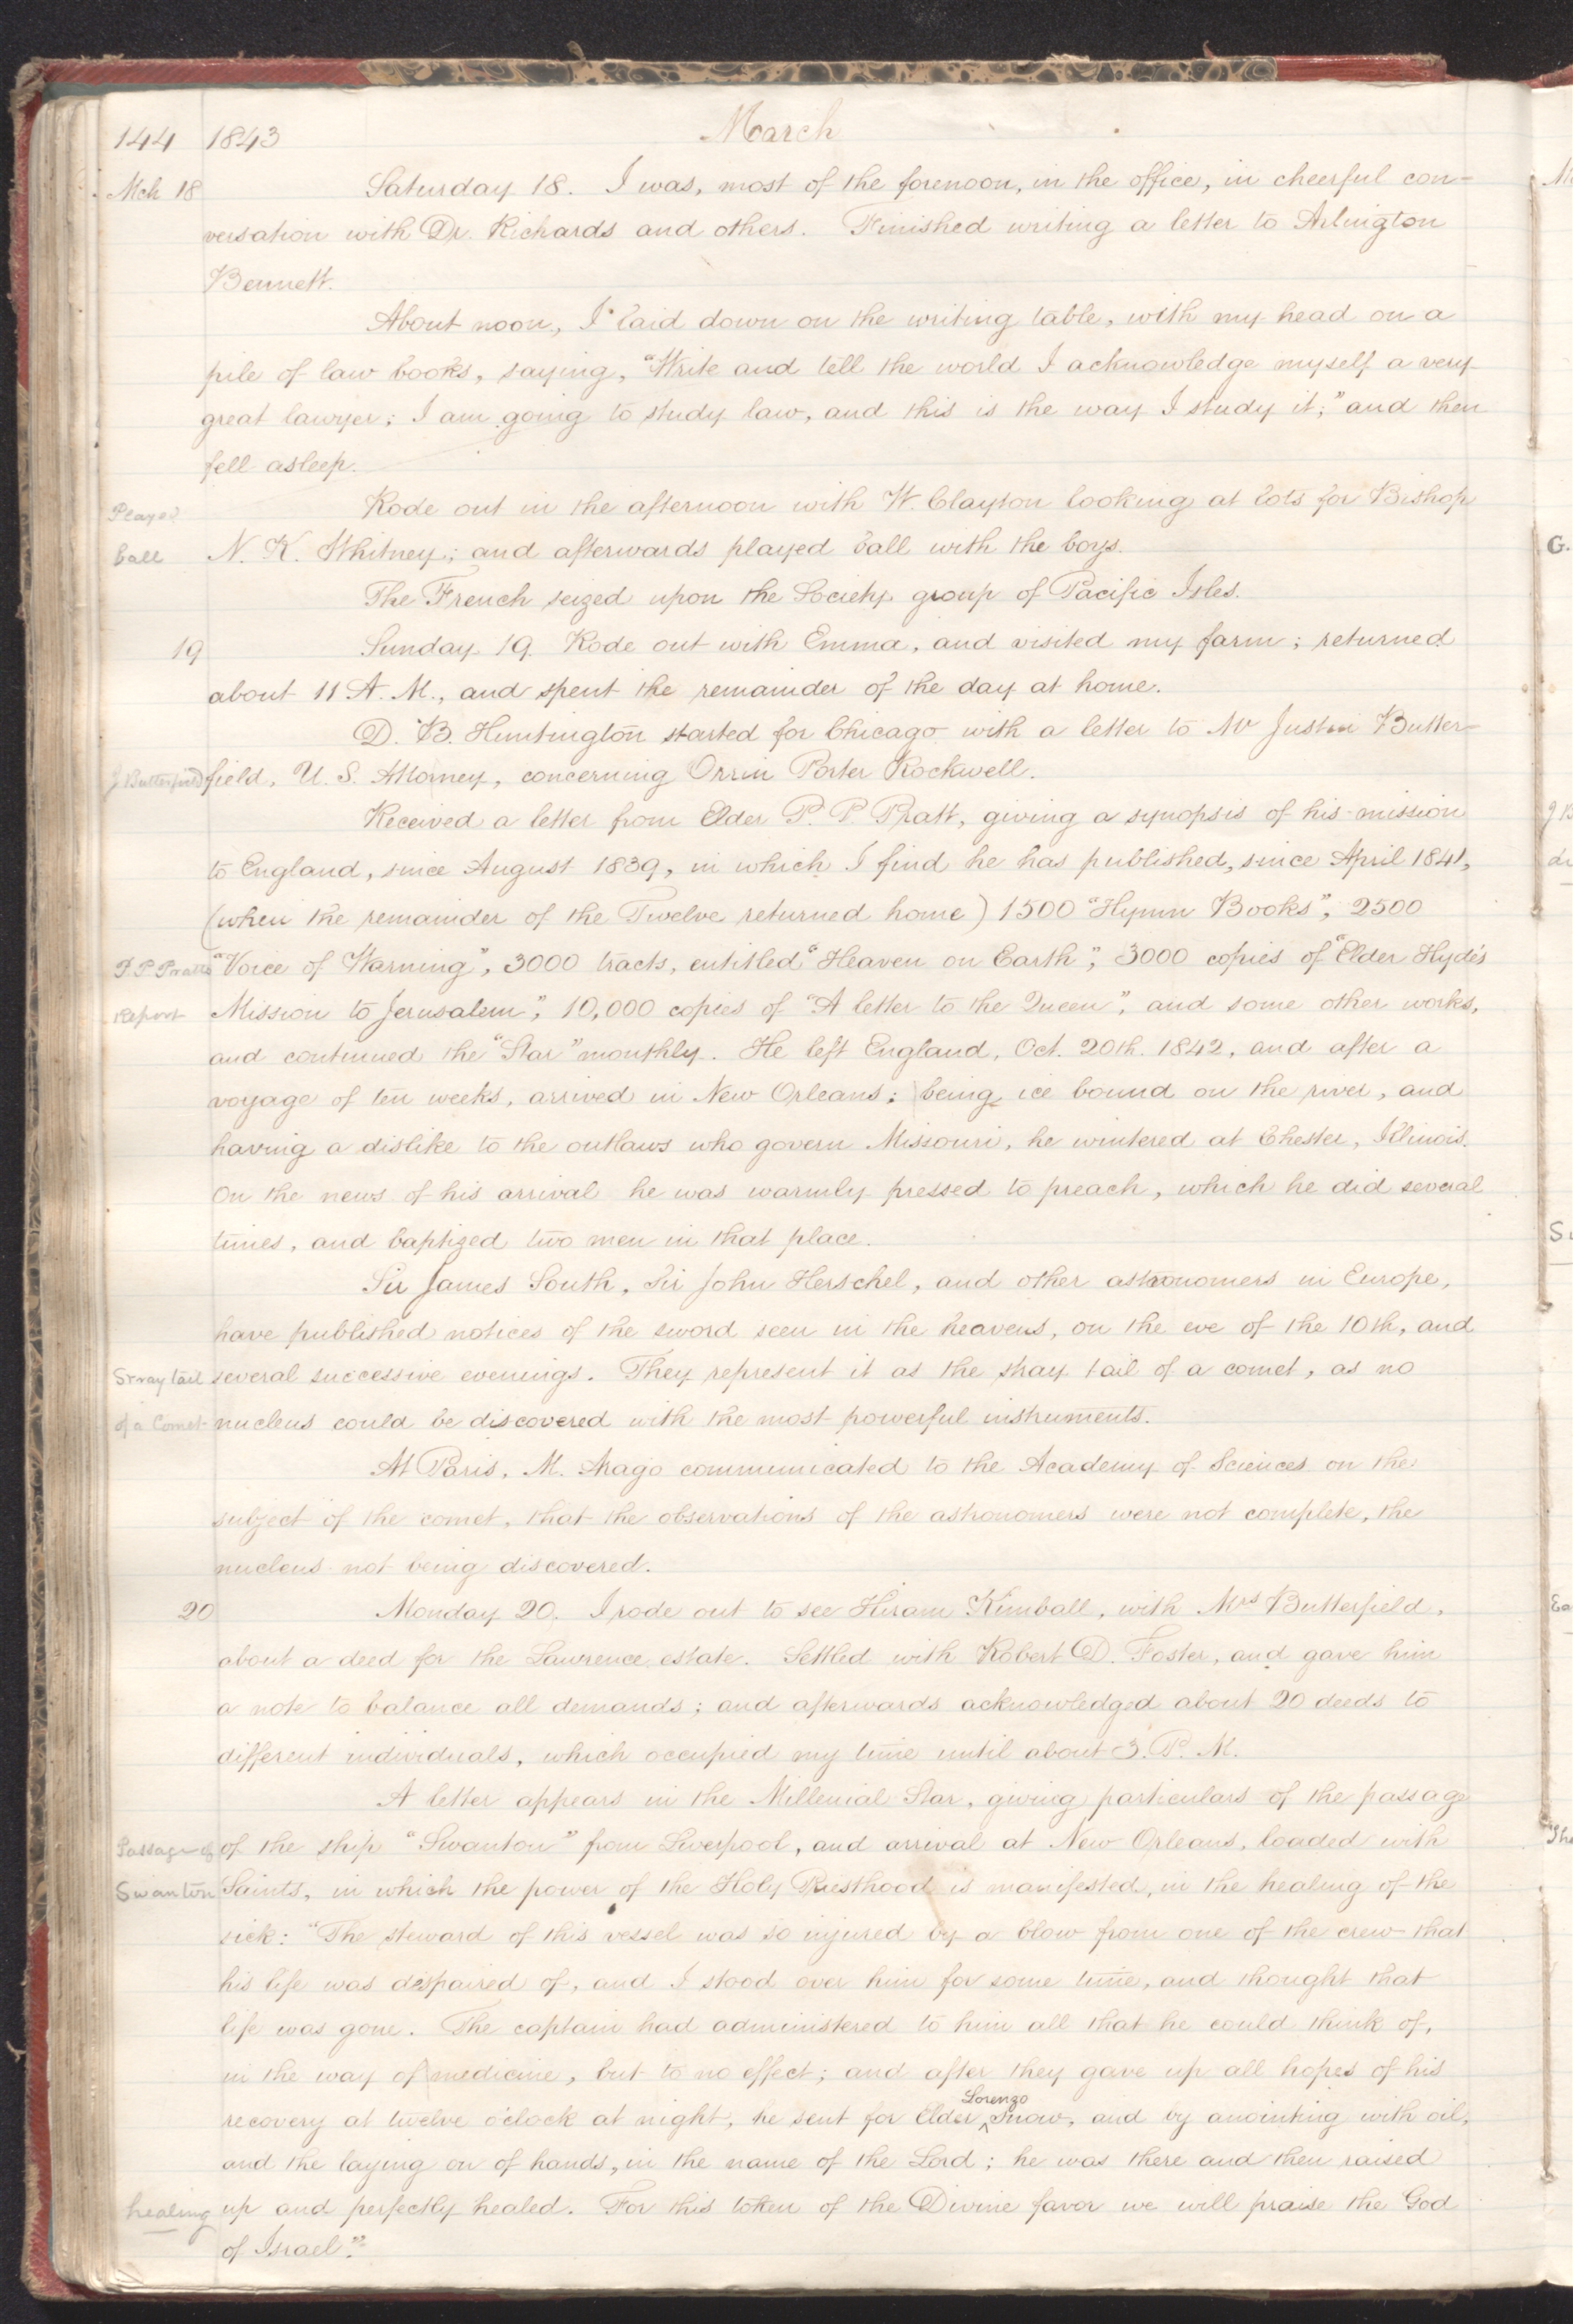 144 1843 March
Mch 18 Saturday 18. I was, most of the forenoon, in the office, in cheerful con-
versation with Dr. Richards and others. Finished writing a letter to Arlington
Bennett.
About noon, I laid down on the writing table, with my head on a
pile of law books, saying, "Write and tell the world I acknowledge myself a very
great lawyer; I am going to study law, and this is the way I study it;" and then
fell asleep.
Played Rode out in the afternoon with W. Clayton looking at lots for Bishop
ball N. K. Whitney; and afterwards played ball with the boys.
The French seized upon the Society group of Pacific Isles.
19 Sunday 19. Rode out with Emma, and visited my farm; returned
about 11 A. M., and spent the remainder of the day at home.
D. B. Huntington started for Chicago with a letter to Mr Justin Butter-
J Butterfield field, U. S. Attorney, concerning Orrin Porter Rockwell.
Received a letter from Elder P. P. Pratt, giving a synopsis of his mission
to England, since August 1839, in which I find he has published, since April 1841,
(when the remainder of the Twelve returned home) 1500 "Hymn Books", 2500
P P Pratts "Voice of Warning", 3000 tracts, entitled "Heaven on Earth"; 3000 copies of "Elder Hyde's
Report Mission to Jerusalem", 10,000 copies of "A letter to the Queen", and some other works,
and continued the "Star" monthly. He left England, Oct. 20th. 1842, and after a
voyage of ten weeks, arrived in New Orleans; being ice bound on the river, and
having a dislike to the outlaws who govern Missouri, he wintered at Chester, Illinois.
On the news of his arrival he was warmly pressed to preach, which he did several
times, and baptized two men in that place.
Sir James South, Sir John Herschel, and other astronomers in Europe,
have published notices of the sword seen in the heavens, on the eve of the 10th, and
Stray tail several successive evenings. They represent it as the stray tail of a comet, as no
of a Comet nucleus could be discovered with the most powerful instruments.
At Paris, M. Arago communicated to the Academy of Sciences on the
subject of the comet, that the observations of the astronomers were not complete, the
nucleus not being discovered.
20 Monday 20. I rode out to see Hiram Kimball, with Mrs Butterfield,
about a deed for the Lawrence estate. Settled with Robert D. Foster, and gave him
a note to balance all demands; and afterwards acknowledged about 20 deeds to
different individuals, which occupied my time until about 3. P. M.
A letter appears in the Millenial Star, giving particulars of the passage
Passage of of the ship "Swanton" from Liverpool, and arrival at New Orleans, loaded with
Swanton Saints, in which the power of the Holy Priesthood is manifested, in the healing of the
sick: "The steward of this vessel was so injured by a blow from one of the crew that
his life was dispaired of, and I stood over him for some time, and thought that
life was gone. The captain had administered to him all that he could think of,
in the way of medicine, but to no effect; and after they gave up all hopes of his
recovery at twelve o'clock at night, he sent for Elder ^Lorenzo Snow, and by anointing with oil,
and the laying on of hands, in the name of the Lord; he was there and then raised
healing up and perfectly healed. For this token of the Divine favor we will praise the God
of Israel."